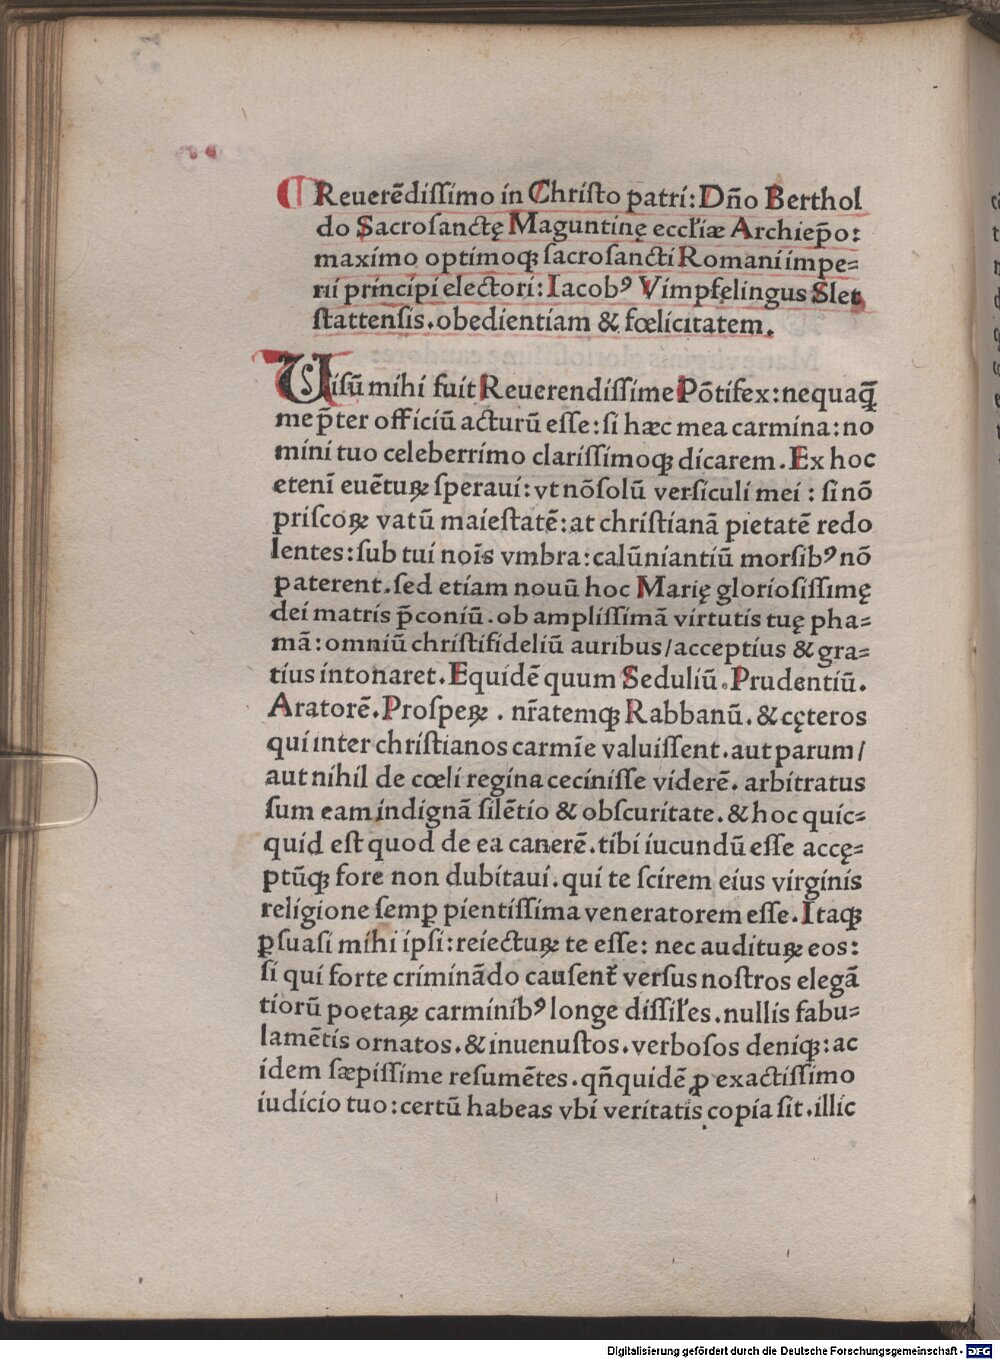 Reuerēdiſſimo in Chriſto patri: Dño Berthol
do Sacroſanctę Maguntinę eccłiæ Archiep̄o:
maximo optimoqꝫ ſacroſancti Romani impe⸗
rii principi electori: Iacobꝰ Vimpfelingus Slet
ſtattenſis. obedientiam & fœlicitatem.
Uiſū mihi fuit Reuerendiſſime Pōtifex: nequaq̄
me p̄ter officiū acturū eſſe: ſi hæc mea carmina: no
mini tuo celeberrimo clariſſimoqꝫ dicarem. Ex hoc
etenī euētuꝝ ſperaui: vt nōſolū verſiculi mei : ſi nō
priſcoꝝ vatū maieſtatē: at chriſtianā pietatē redo
lentes: ſub tui noīs vmbra: calūniantiū morſibꝰ nō
paterent. ſed etiam nouū hoc Marię glorioſiſſimę
dei matris p̄coniū. ob ampliſſimā virtutis tuę pha⸗
mā: omniū chriſtifideliū auribus/ acceptius & gra⸗
tius intonaret. Equidē quum Seduliū. Prudentiū.
Aratorē. Proſpeꝝ . nr̄atemqꝫ Rabbanū. & cęteros
qui inter chriſtianos carmīe valuiſſent. aut parum/
aut nihil de cœli regina ceciniſſe viderē. arbitratus
ſum eam indignā ſilētio & obſcuritate. & hoc quic⸗
quid eſt quod de ea canerē. tibi iucundū eſſe accę⸗
ptūqꝫ fore non dubitaui. qui te ſcirem eius virginis
religione ſemꝑ pientiſſima veneratorem eſſe. Itaqꝫ
ꝑſuaſi mihi ipſi: reiectuꝝ te eſſe: nec audituꝝ eos:
ſi qui forte criminādo cauſent̄ verſus noſtros elegā
tiorū poetaꝝ carminibꝰ longe diſſiłes. nullis fabu⸗
lamētis ornatos. & inuenuſtos. verboſos deniqꝫ: ac
idem ſæpiſſime reſumētes. qñquidē ꝓ exactiſſimo
iudicio tuo: certū habeas vbi veritatis copia ſit. illic
Digitalisierung gefördert durch die Deutsche Forschungsgemeinschaft - DFG